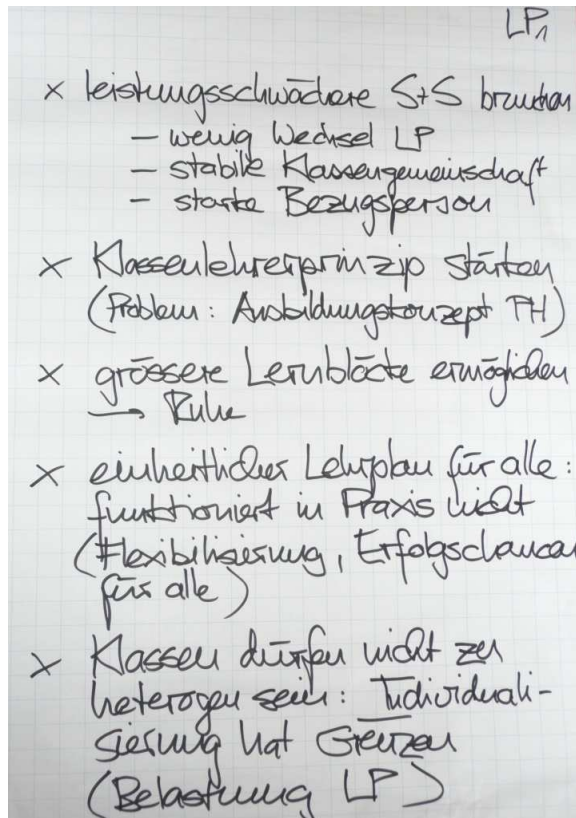 LP1
× leistungsschwächere S+S brauchen
– wenig Wechsel LP
– stabile Klassengemeinschaft
– starke Bezugsperson
× Klassenlehrerprinzip stärken
(Problem: Ausbildungskonzept PH)
× grössere Lernblöcke ermöglichen
→ Ruhe
× einheitlicher Lehrplan für alle:
funktioniert in Praxis nicht
(Flexibilisierung, Erfolgschancen
für alle)
× Klassen dürfen nicht zu
heterogen sein: Individuali-
sierung hat Grenzen
(Belastung LP)